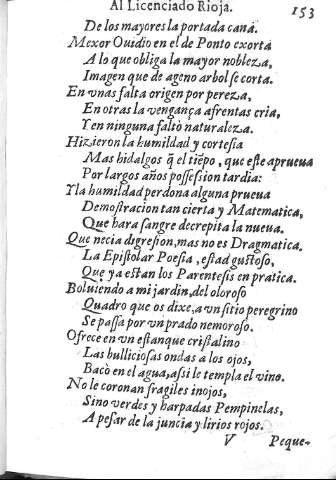 Al Licenciado Rioja. 153
De los mayores la portada cana.
Mexor Ouidio en el de Ponto exorta
A lo que obliga la mayor nobleza,
Imagen que de ageno arbol se corta.
En vnas falta origen por pereza,
En otras la vengança afrentas cria,
Y en ninguna faltò naturaleza.
Hizieron la humildad y cortesia
Mas hidalgos q̃ el tiẽpo, que este aprueua
Por largos años possession tardia:
Y la humildad perdona alguna prueua
Demostracion tan cierta y Matematica,
Que hara sangre decrepita la nueua.
Que necia digresion, mas no es Dragmatica.
La Epistolar Poesia, estad gustoso,
Que ya estan los Parentesis en pratica.
Boluiendo a mi jardin, del oloroso
Quadro que os dixe, a vn sitio peregrino
Se passa por vn prado nemoroso.
Ofrece en vn estanque cristalino
Las bulliciosas ondas a los ojos,
Bacò en el agua, assi le templa el vino.
No le coronan fragiles inojos,
Sino verdes y harpadas Pempinelas,
A pesar de la juncia y lirios rojos.
V Peque-